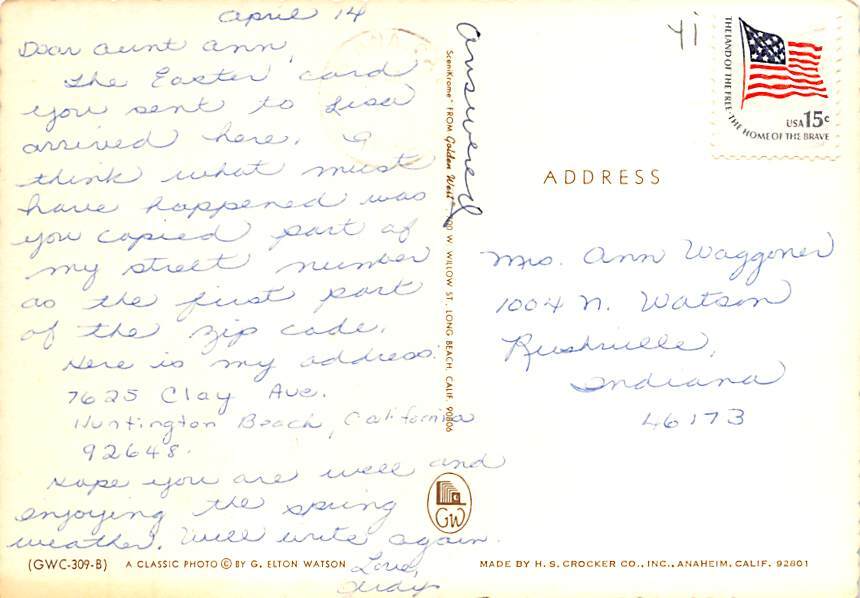 April 14
Dear Aunt Ann,
The Easter card
you sent to Lisa
arrived here. I
think what must
have happened was
you copied part of
my street number
as the first part
of the zip code.
Here is my address:
7625 Clay Ave.
Huntington Beach, California
92648.
Hope you are well and
enjoying the spring
weather. Will write again.
Love,
Judy
Answered
SceniKrome FROM Golden West W. WILLOW ST., LONG BEACH, CALIF. 90806
GW
41
THE LAND OF THE FREE · THE HOME OF THE BRAVE
USA 15c
ADDRESS
Mrs. Ann Waggoner
1004 N. Watson
Rushville,
Indiana
46173
(GWC-309-B) A CLASSIC PHOTO © BY G. ELTON WATSON
MADE BY H. S. CROCKER CO., INC., ANAHEIM, CALIF. 92801